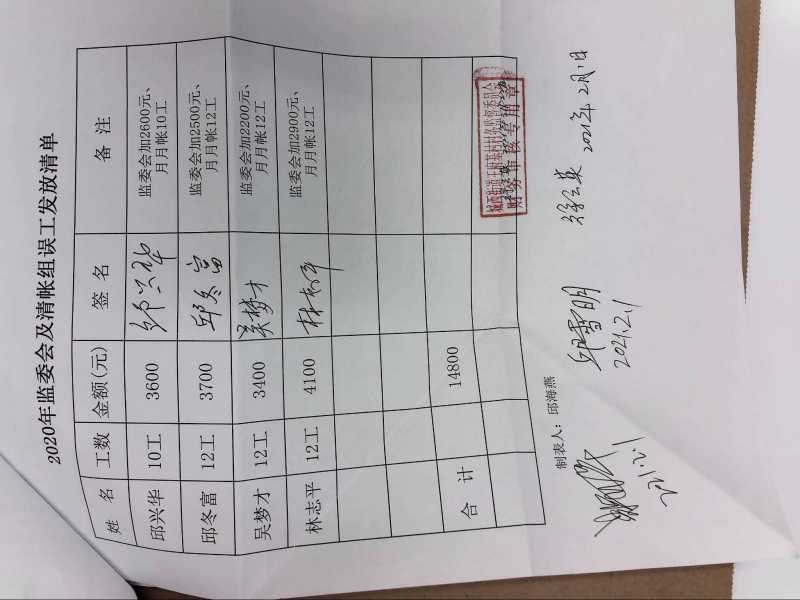 2020年监委会及清帐组误工发放清单
姓 名 工数 金额(元) 签 名 备 注
邱兴华 10工 3600 邱兴华 监委会加2600元、
月月帐10工
邱冬富 12工 3700 邱冬富 监委会加2500元、
月月帐12工
吴梦才 12工 3400 吴梦才 监委会加2200元、
月月帐12工
林志平 12工 4100 林志平 监委会加2900元、
月月帐12工
合 计 14800
财务审核专用章
制表人：邱海燕
邱雪明
2021.2.1
2021年2月1日